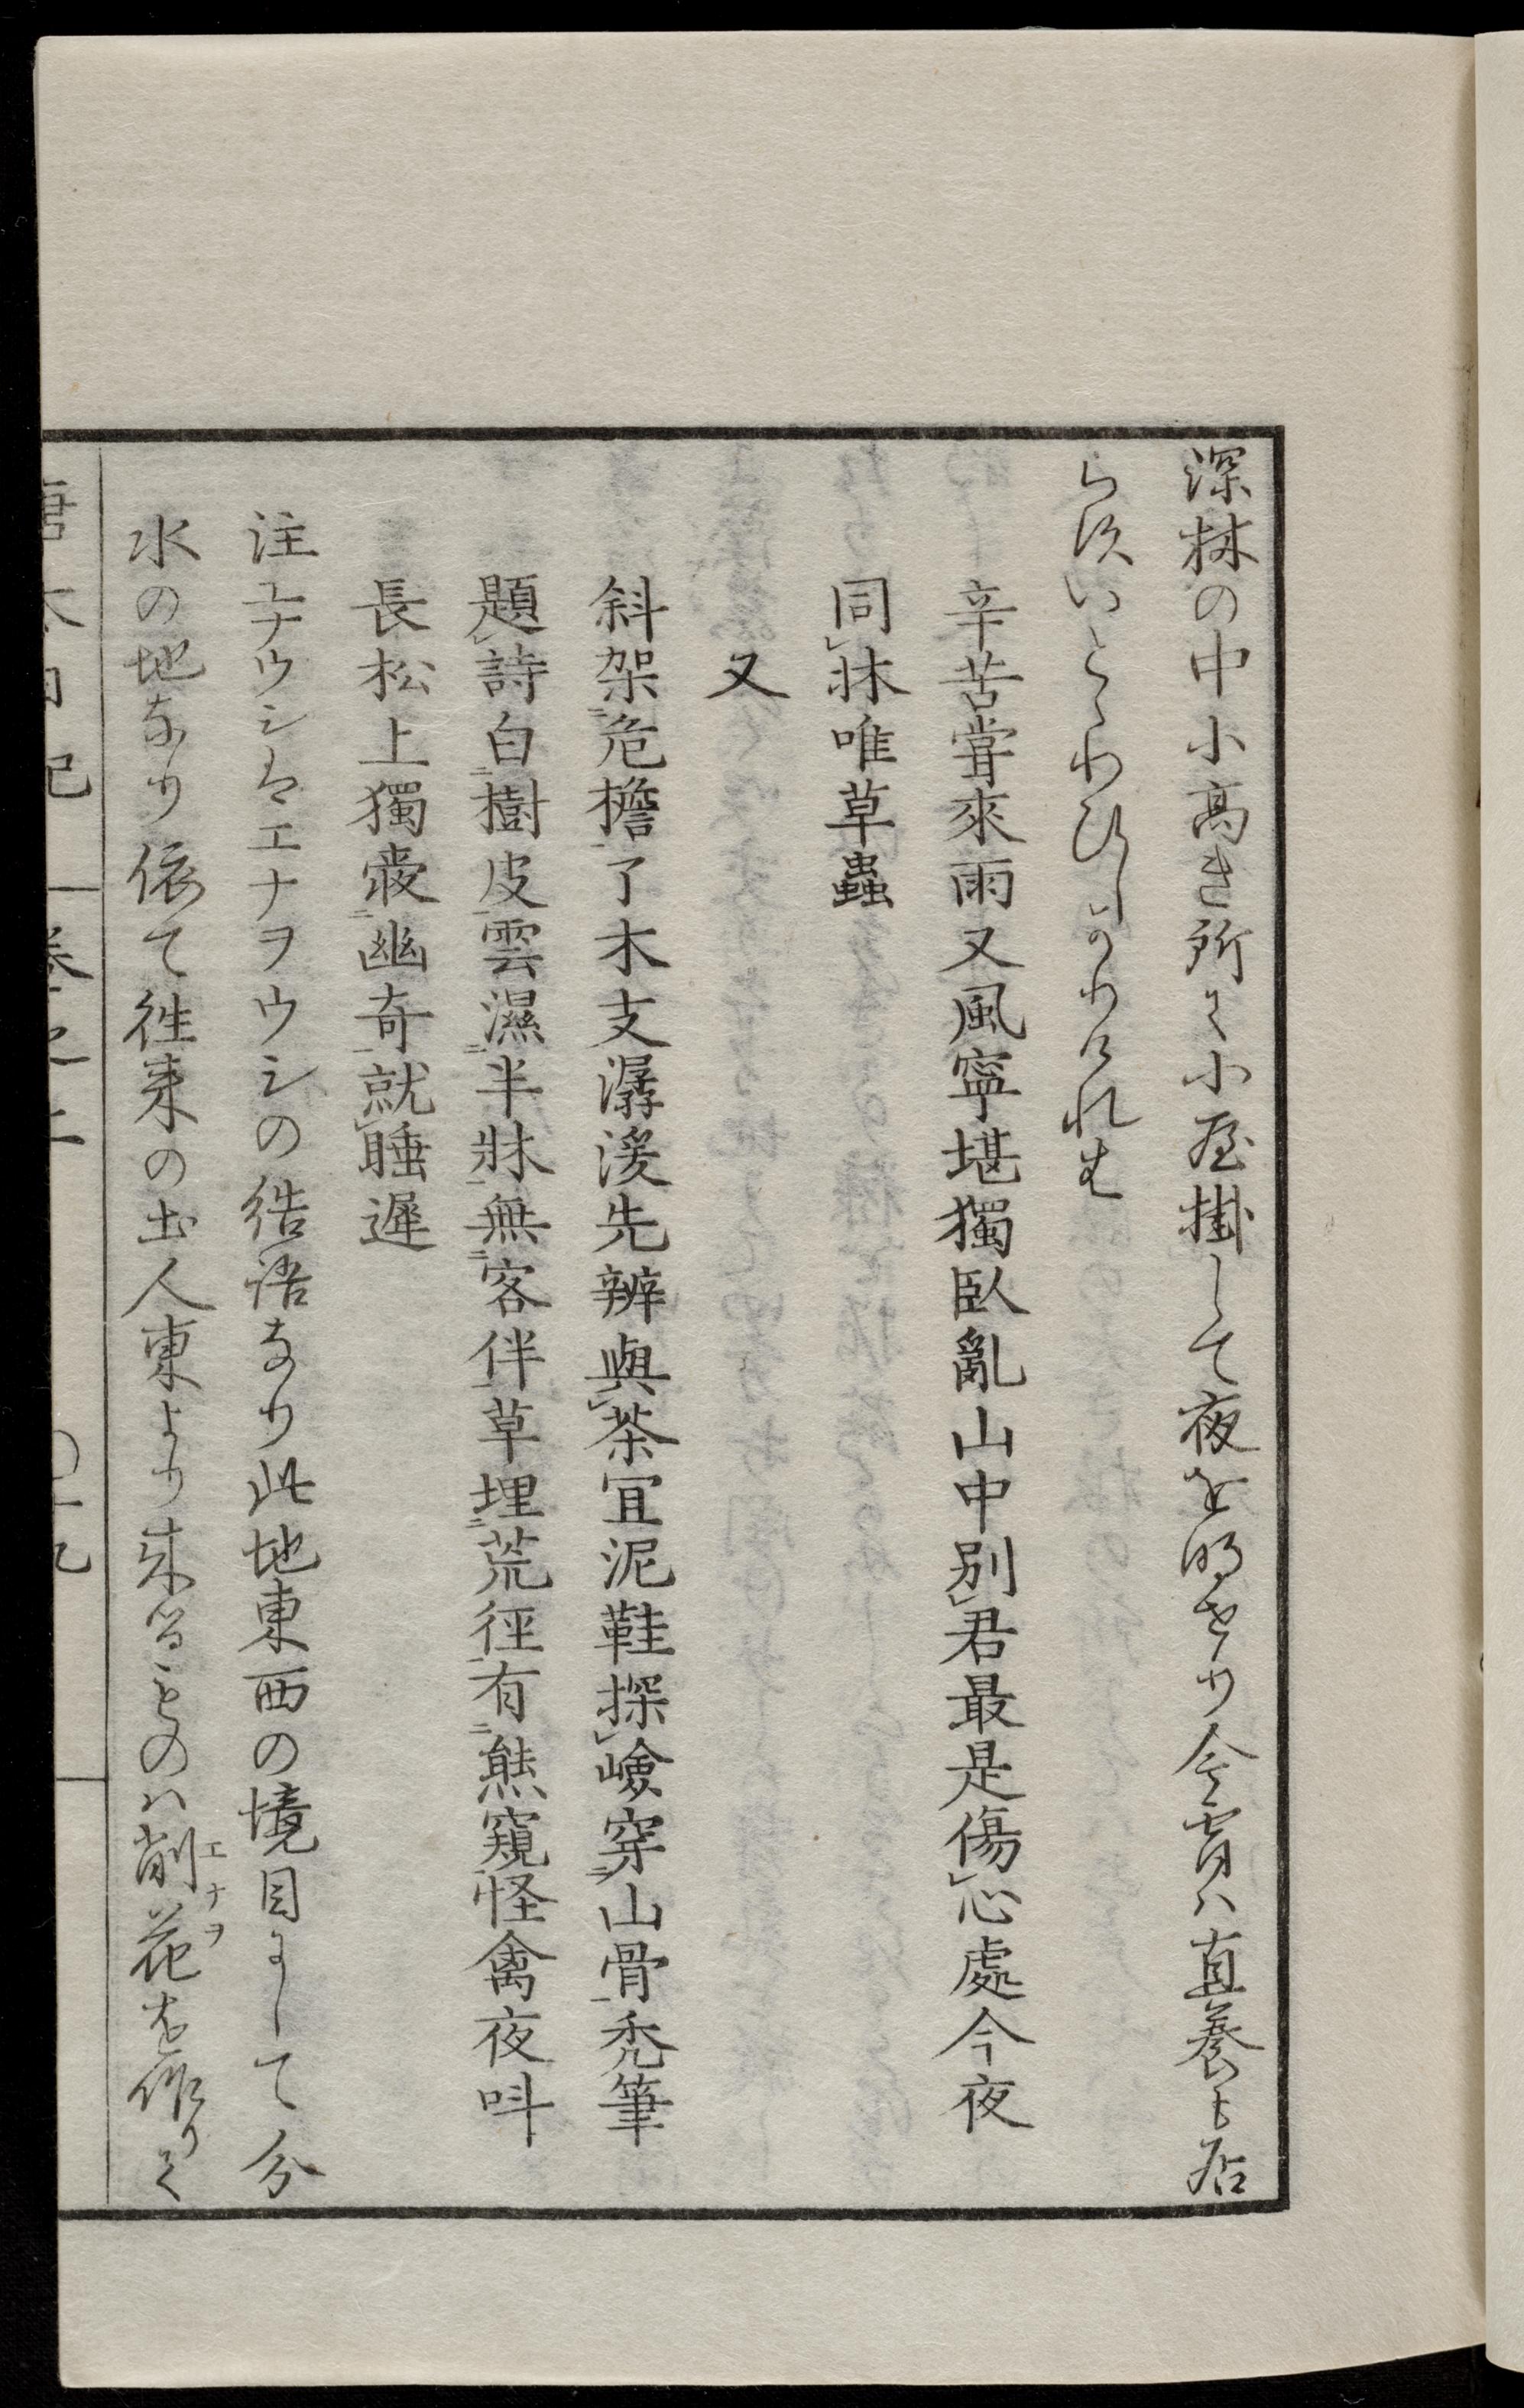 深林の中小高き所に小屋掛して夜を明せり今宵ハ直養も居
らすいとゝわひしかりけれは
辛苦甞來雨又風寧堪獨臥亂山中別君最是傷心處今夜
同牀唯草蟲
又
斜架危檐了木支潺湲先辨與茶冝泥鞋探嶮穿山骨禿筆
題詩白樹皮雲濕半牀無客伴草埋荒徑有熊窺怪禽夜呌
長松上獨愛幽奇就睡遲
注エナウシはエナヲウシの詰語なり此地東西の境目にして分
水の地なり依て徃来の土人東より来るものハ削花を作りて
エナヲ
唐太日記 卷之二 〇十九